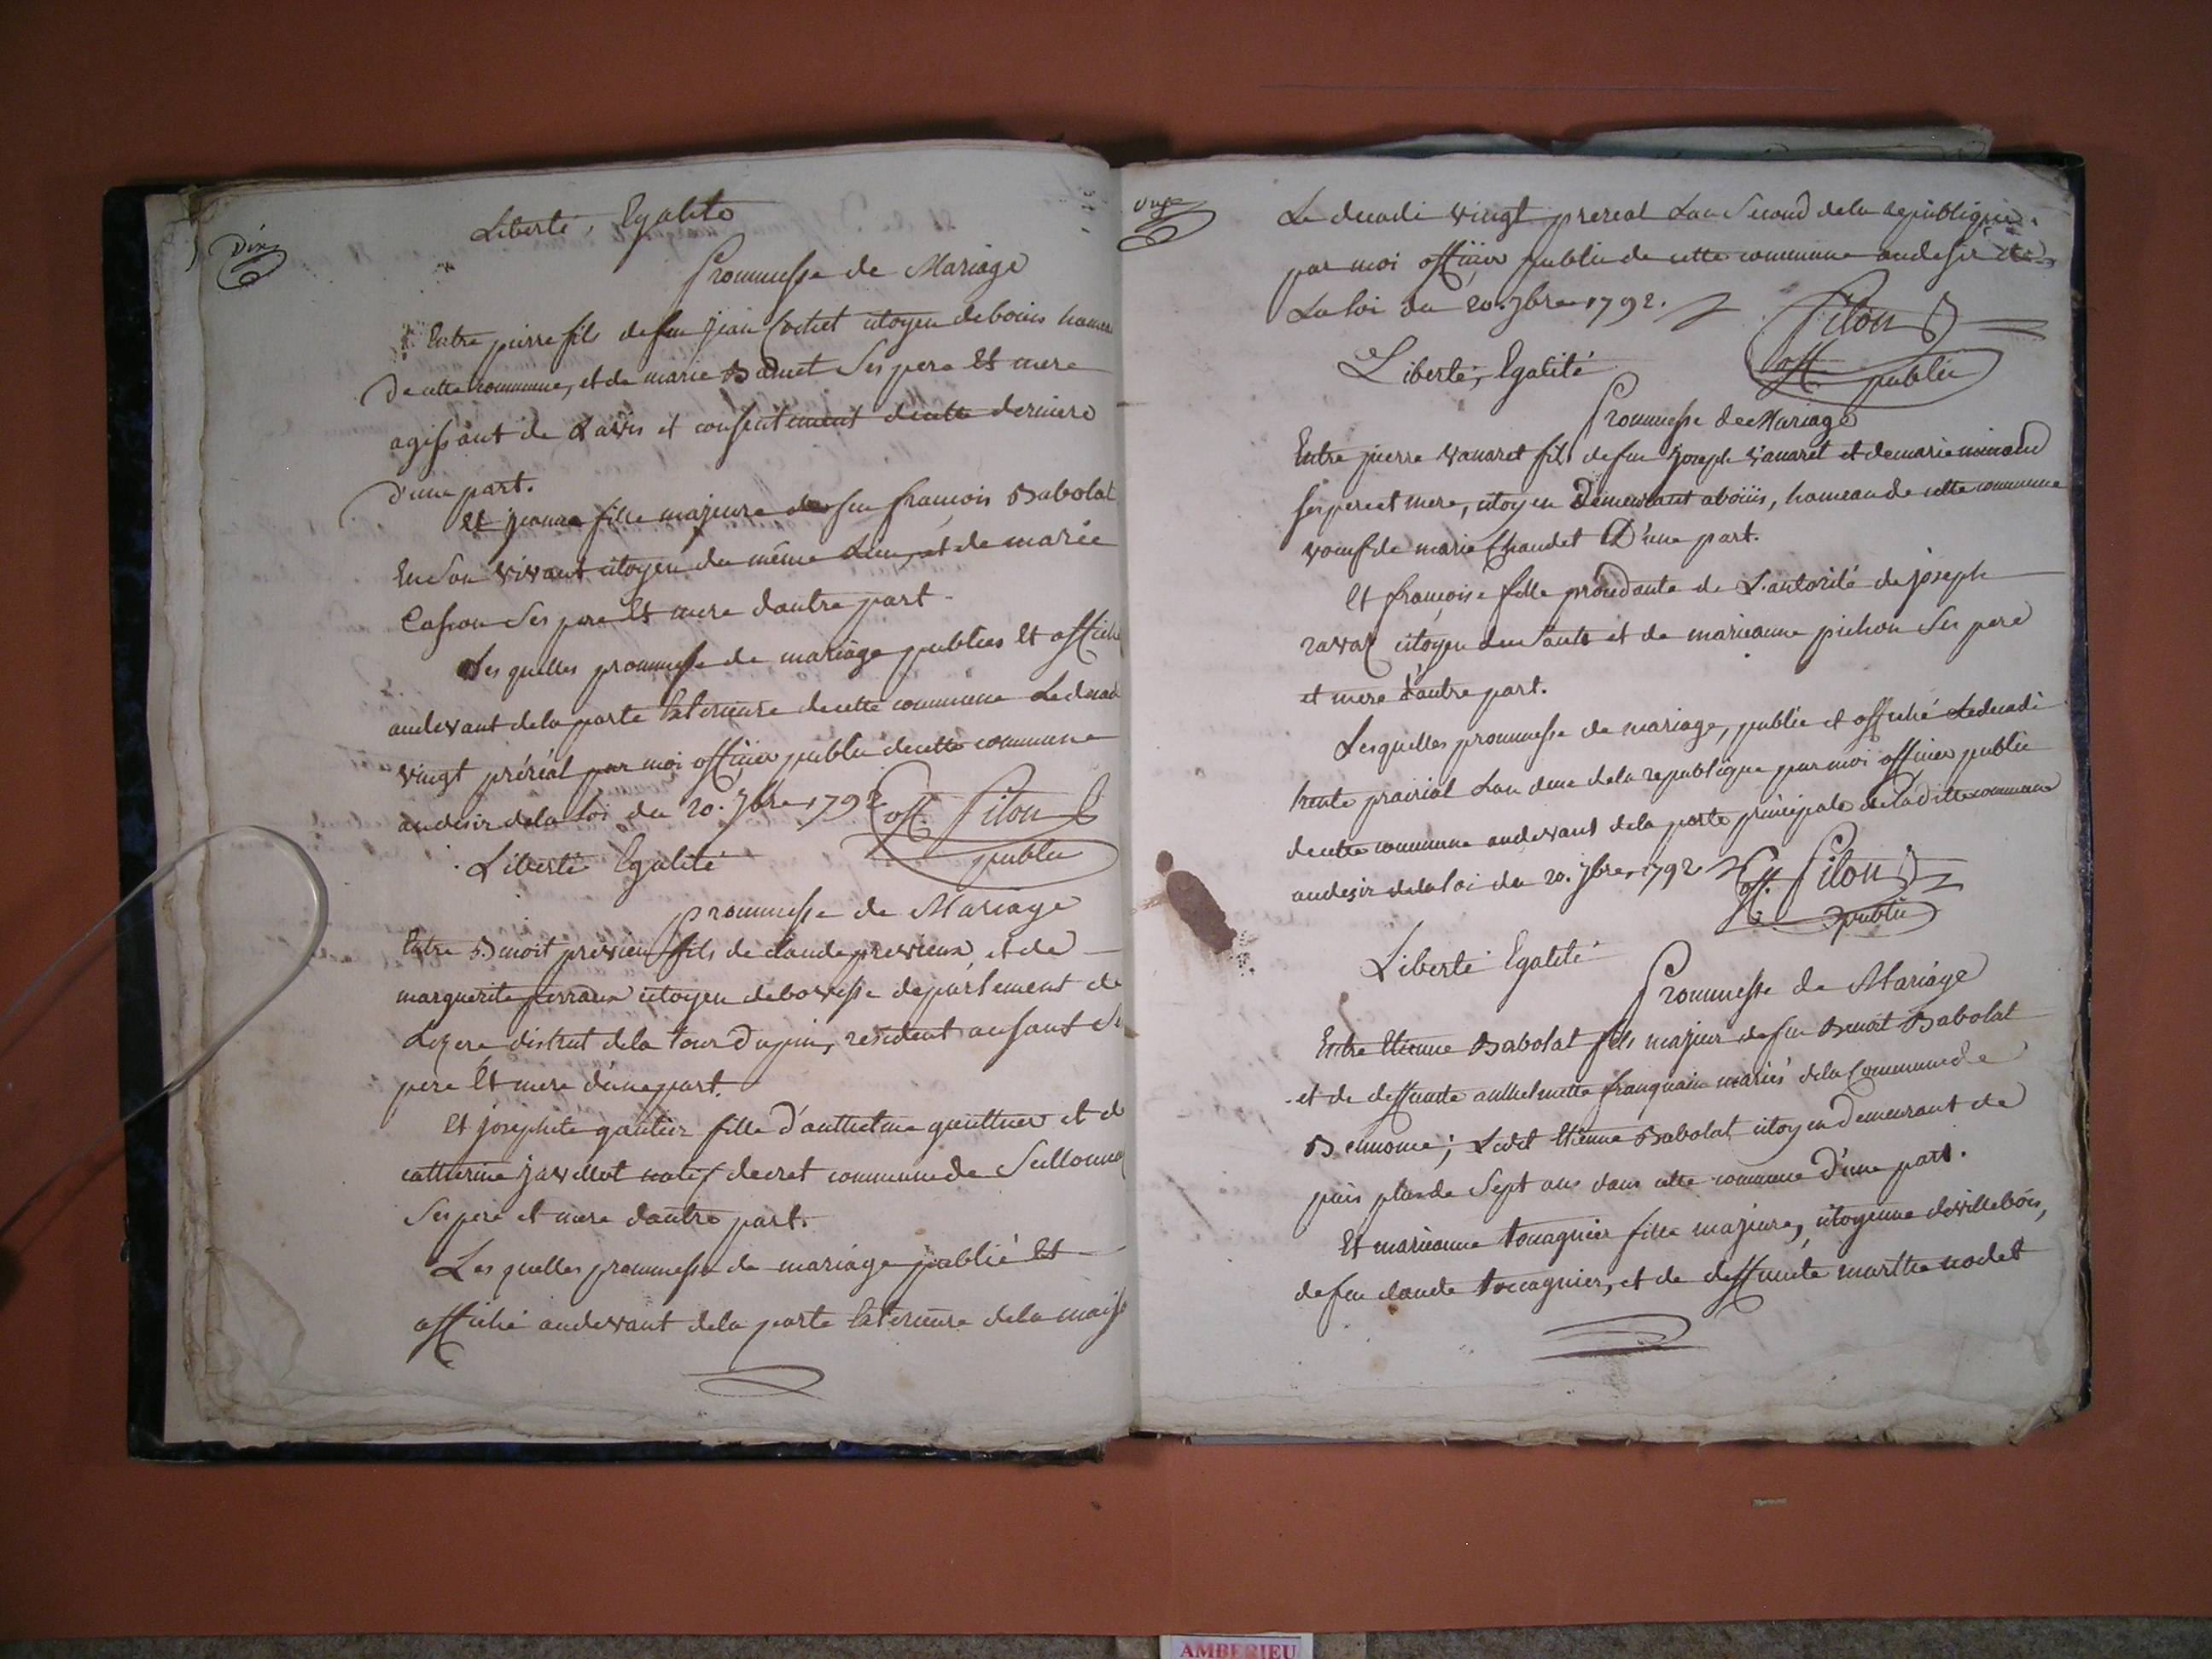 Dix
Liberté, Egalité
Prommesse de Mariage
Entre pierre fils de feu jean Cochet citoyen de bouis hameau
De cette commune, et de marie Brunet Ses pere Et mere
agissant de Lavis et consentement decette derniere
D'une part.
Et jeanne fille majeure de feu françois Babolat
En son vivant citoyen du même Lieu, et de marie
Casson Ses pere Et mere dautre part.
Les quelles prommesse de mariage publiés Et affiché
audevant dela porte Exterieure decette commune Le decadi
vingt préréal par moi officier public decette commune
audesir dela Loi du 20. 7bre 1792
off. Pilon
public
Liberté Egalité
prommesse de Mariage
Entre Benoit previeux fils de claude previeux, et de
marguerite ferraux citoyen debovesse departement de
Lizere district dela tour Dupin, resident au sant Ses
pere Et mere d'une part.
Et josephte gautier fille d'anthelme gauttier et de
catterine javellot natif decret commune de Seillonna
Ses pere et mere dautre part.
Les quelles prommesse de mariage publié Et
affiché audevant dela porte Exterieure dela maiso
onze
Le decadi vingt prereal Lan Second dela republique
par moi officier public de cette commune audesir de
La loi du 20. 7bre 1792.
Pilon
off. public
Liberté, Egalité
Prommesse de Mariage
Entre pierre vanaret fils de feu joseph vanaret et de marie
ses pere et mere, citoyen Demeurant aboüis, hameau de cette commune
voeuf de marie Chaudet D'une part.
Et françoise fille procédante de L'autorité de joseph
ravat citoyen du Sault et de marieanne pichon Ses pere
et mere d'autre part.
Lesquelles prommesse de mariage, publié et affiché Ledecadi
trente prairial Lan deux dela republique par moi officier public
decette commune audevant dela porte principale deladitte commune
audesir dela loi du 20. 7bre 1792.
off. Pilon
public
Liberté Egalité
Prommesse de Mariage
Entre Etienne Babolat fils majeur de feu Benoit Babolat
et de deffunte anthelmette franquain mariés dela Commune de
Bennonce; Ledit Etienne Babolat citoyen Demeurant de
puis plus de Sept ans dans cette commune d'une part.
Et marieanne tocagnier fille majeure, citoyenne devillebois,
de feu claude tocagnier, et de deffunte marthe nodet
AMBERIEU